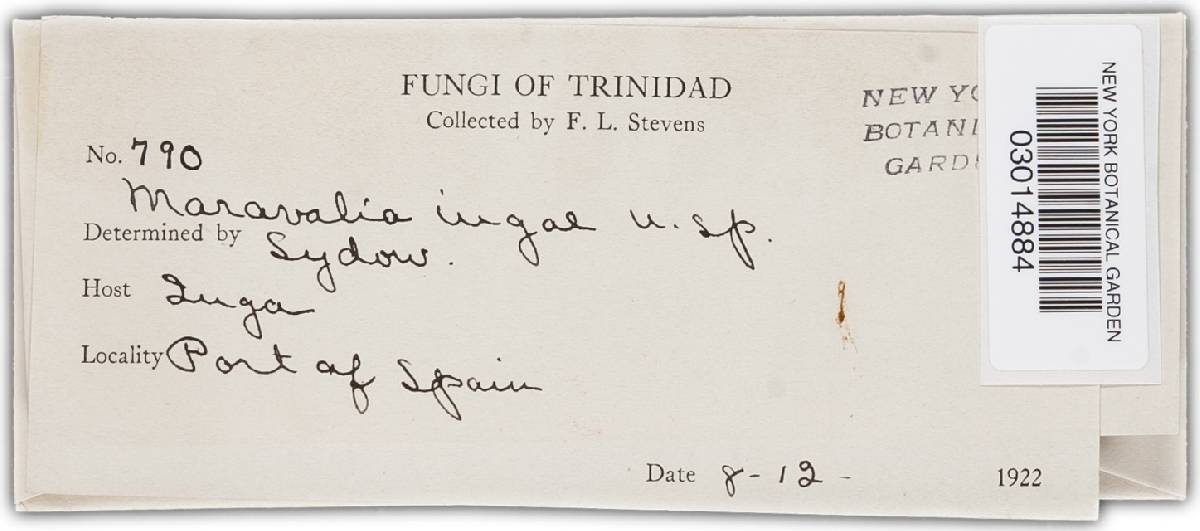 FUNGI OF TRINIDAD
Collected by F. L. Stevens
NEW YO
BOTANI
GARD
No. 790
Maravalia ingae n. sp.
Determined by Sydow.
Host Inga
Locality Port of Spain
Date 8-12- 1922
NEW YORK BOTANICAL GARDEN
03014884